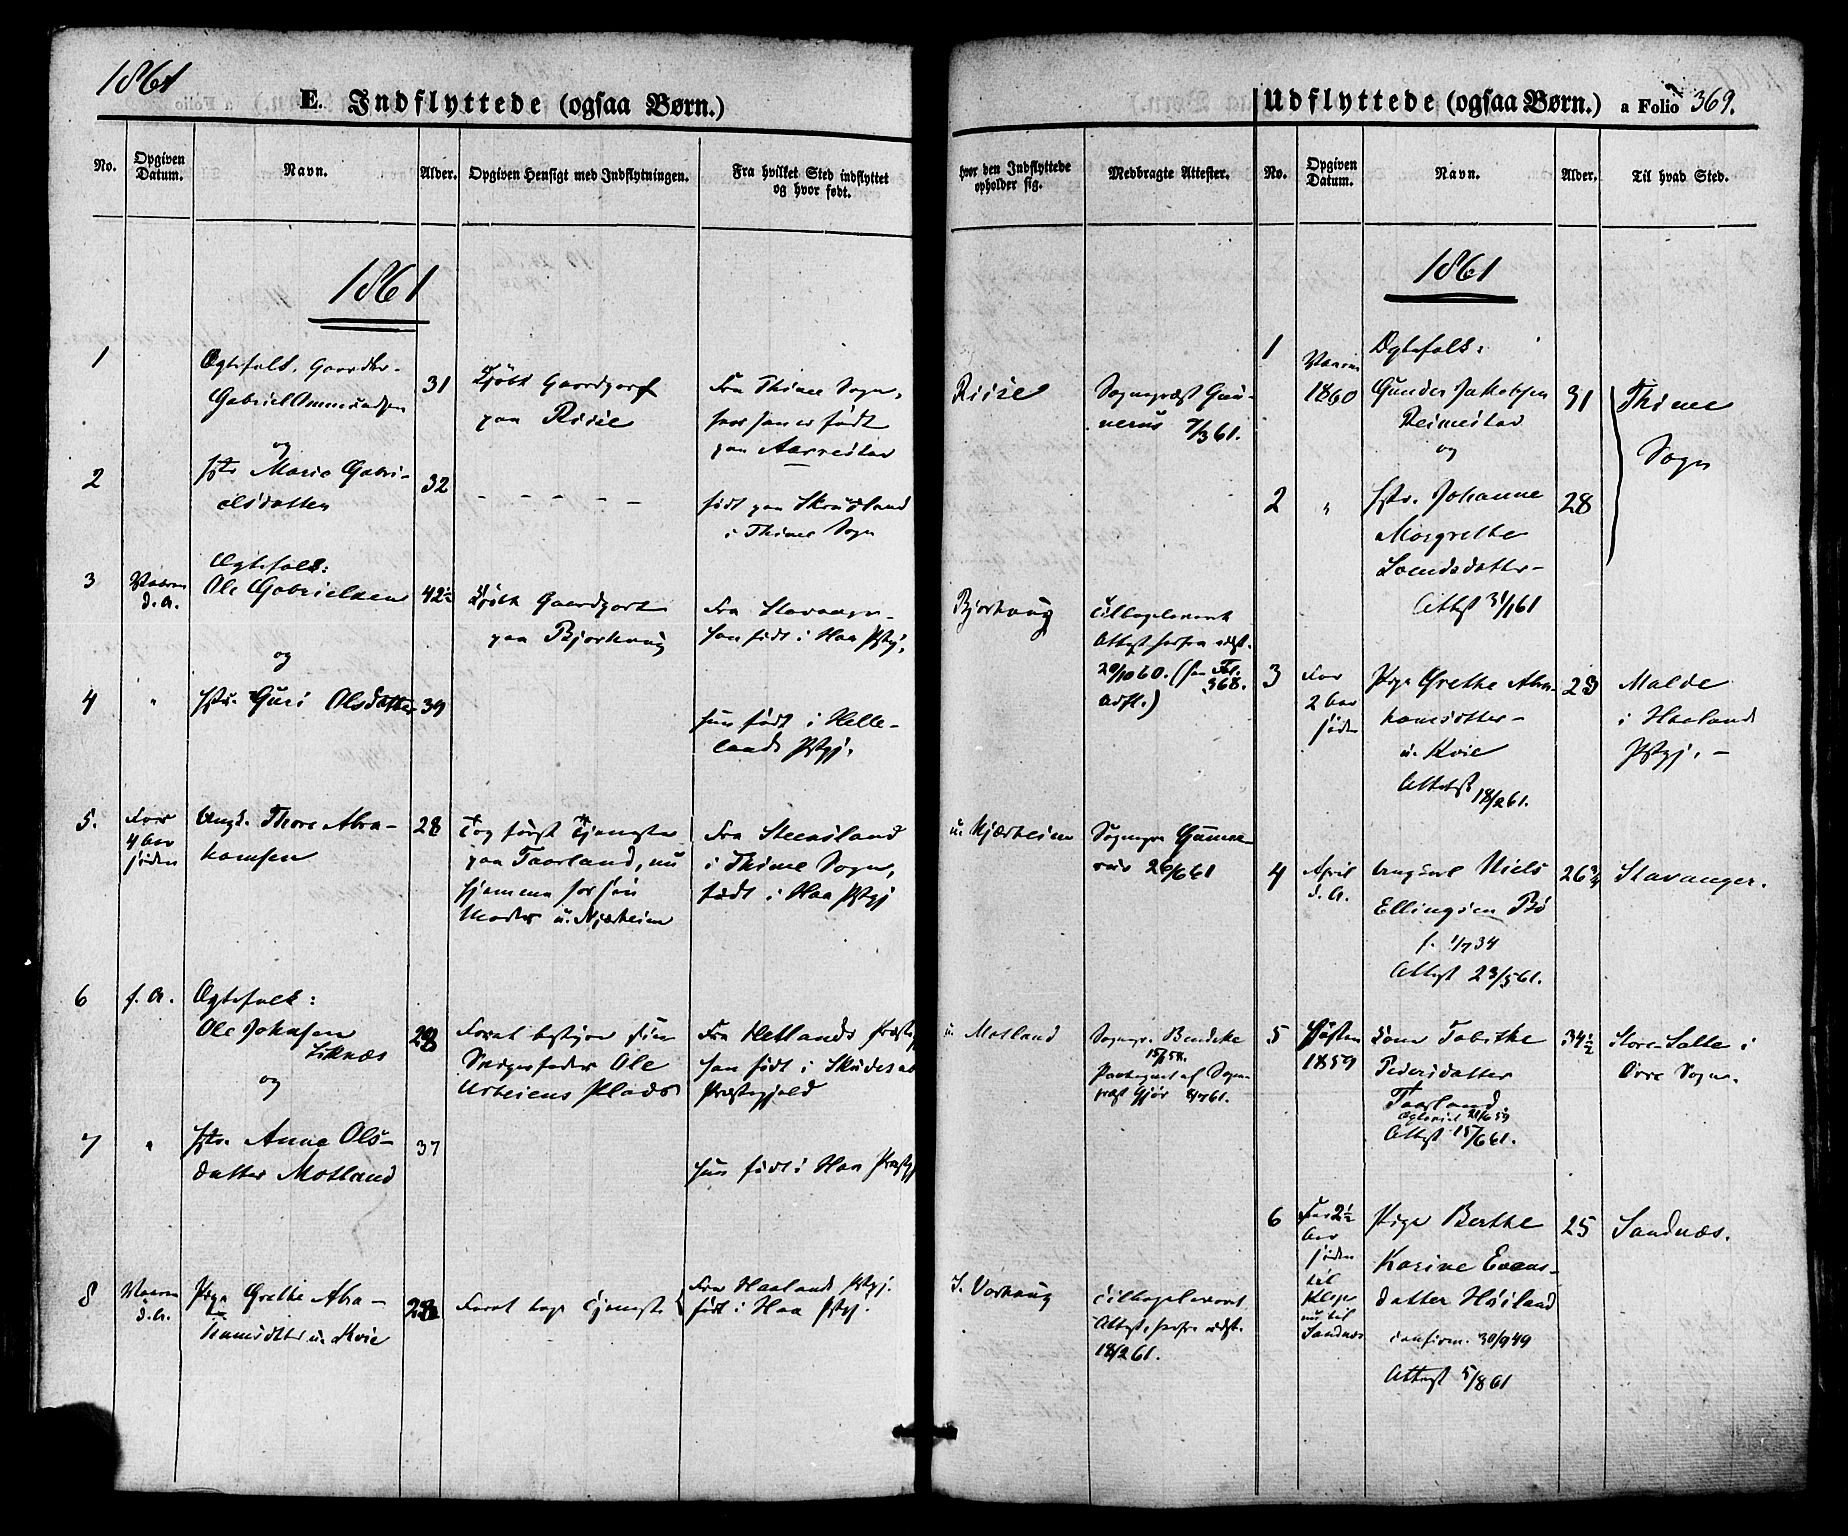 1861
E. Indflyttede (ogsaa Børn.)
No.
Opgiven Datum.
Navn.
Alder.
Opgiven Hensigt med Indflytningen.
Fra hvilket Sted indflyttet og hvor født.
1861
1
Ægtefolk, Gaardbr.
Gabriel Ommundsen
31
Kjøbt Gaardpart
paa Riise
Fra Thime Sogn,
hvor han er født
paa Aarrestad
og
2
hstr Marie Gabri-
elsdatter
32
- - - - -
født paa Skrudland
i Thime Sogn
3
Vaaren
d. A.
Ægtefolk:
Ole Gabrielsen
42½
Kjøbt Gaardpart
paa Bjorhaug
Fra Stavanger
han født i Haa Pstgj.
og
4
"
hstr. Guri Olsdatter
39
hun født i Helle-
lands Pstgj.
5.
For
4 Aar
siden
Ungk. Thore Abra-
hamsen
28
Tog først Tjeneste
paa Taarland, nu
hjemme hos sin
Moder u. Njærheim
Fra Steensland
i Thime Sogn,
født i Haa Pstgj
6
f. A.
Ægtefolk:
Ole Johnsen
Liknæs
28
Forat bestyre sin
Svigerfader Ole
Plads
Fra Hetlands Præstegj
han født i Skudesnæs
Præstegjeld
og
7
"
hstr. Anna Ols-
datter Motland
37
hun født i Haa Præstgj
8
Vaaren
d. A.
Pige Grethe Abra-
hamsdtter u. Kvie
28
Forat tage Tjeneste
Fra Haalands Pstgj.
født i Haa Pstgj.
hvor den Indflyttede opholder sig.
Medbragte Attester.
Riise
Sognepræst Gun-
nerus 7/3 61.
Bjorhaug
tilbageleveret
Attest herfra udst.
29/10 60. (see Fol.
368.
udfl.)
u. Njærheim
Sognepr Gunne-
rus 26/6 61
u. Motland
Sognepr. Bendeke
15/ 58.
Paategnet af Sogne-
præst Gjør 8/7 61.
I. Varhaug
tilbageleveret
Attest, herfra udst.
18/2 61.
Udflyttede (ogsaa Børn.) a Folio 369.
No.
Opgiven Datum.
Navn.
Alder.
Til hvad Sted.
1861
1
Vaaren
1860
Ægtefolk:
Gunder Jakobsen
Reimestad
31
Thime
Sogn
og
2
"
hstr. Johanne
Margrethe
Tomdsdatter-
Attest 31/1 61
28
3
For
2 Aar
siden
Pige Grethe Abra-
hamsdtter-
u. Kvie
Attest 18/2 61.
23
Malde
i Haaland
Pstgj. -
4
April
d. A.
Ungkarl Niels
Ellingsen Bø
f. 1/7 34
Attest 23/5 61.
26¾
Stavanger.
5
Høsten
1859
Kone Tabithe
Pedersdatter
Taarland
Ægteviet 21/6 59
Attest 15/6 61.
34½
Store-Salte i
Orre Sogn.
6
For 2½
Aar
siden
til
Klep
nu til
Sandnæs
Pige Berthe
Karine Evens-
datter Høiland
confirm. 30/9 49
Attest 5/8 61
25
Sandnæs.